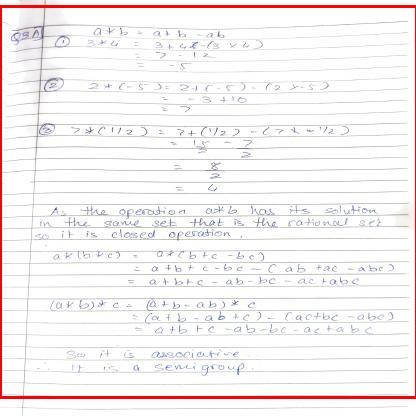 Q3A) a*b = a+b - ab
① 3*4 = 3+4-(3×4)
= 7 - 12
= -5
② 2*(-5) = 2+(-5) - (2×-5)
= -3 +10
= 7
③ 7*(1/2) = 7+(1/2) - (7×1/2)
= 15/2 - 7/2
= 8/2
= 4
As the operation a*b has its solution
in the same set that is the rational set
so it is closed operation.
a*(b*c) = a*(b+c-bc)
= a+b+c-bc-(ab+ac-abc)
= a+b+c-ab-bc-ac+abc
(a*b)*c = (a+b-ab)*c
= (a+b-ab+c)-(ac+bc-abc)
= a+b+c-ab-bc-ac+abc
So it is associative.
∴ It is a semigroup.